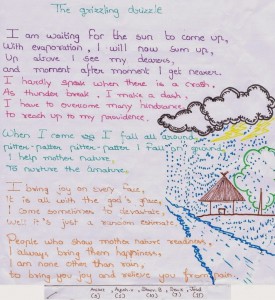 The grizzling drizzle
I am waiting for the sun to come up,
With evaporation, I will now sum up,
Up above I see my dearers,
and moment after moment I get nearer.
I hardly speak when there is a crash,
As thunder break, I make a dash,
I have to overcome many hindrance
to reach up to my providence.
When I come I fall all around,
pitter-patter, pitter-patter I fall on ground,
I help mother nature,
To nurture the
I bring joy on every face,
It is all with the god's grace,
I come sometimes to devastate,
Well it's just a random estimate,
People who show mother nature readiness,
I always bring them happiness,
I am none other than rain,
to bring you joy and relieve you from pain.